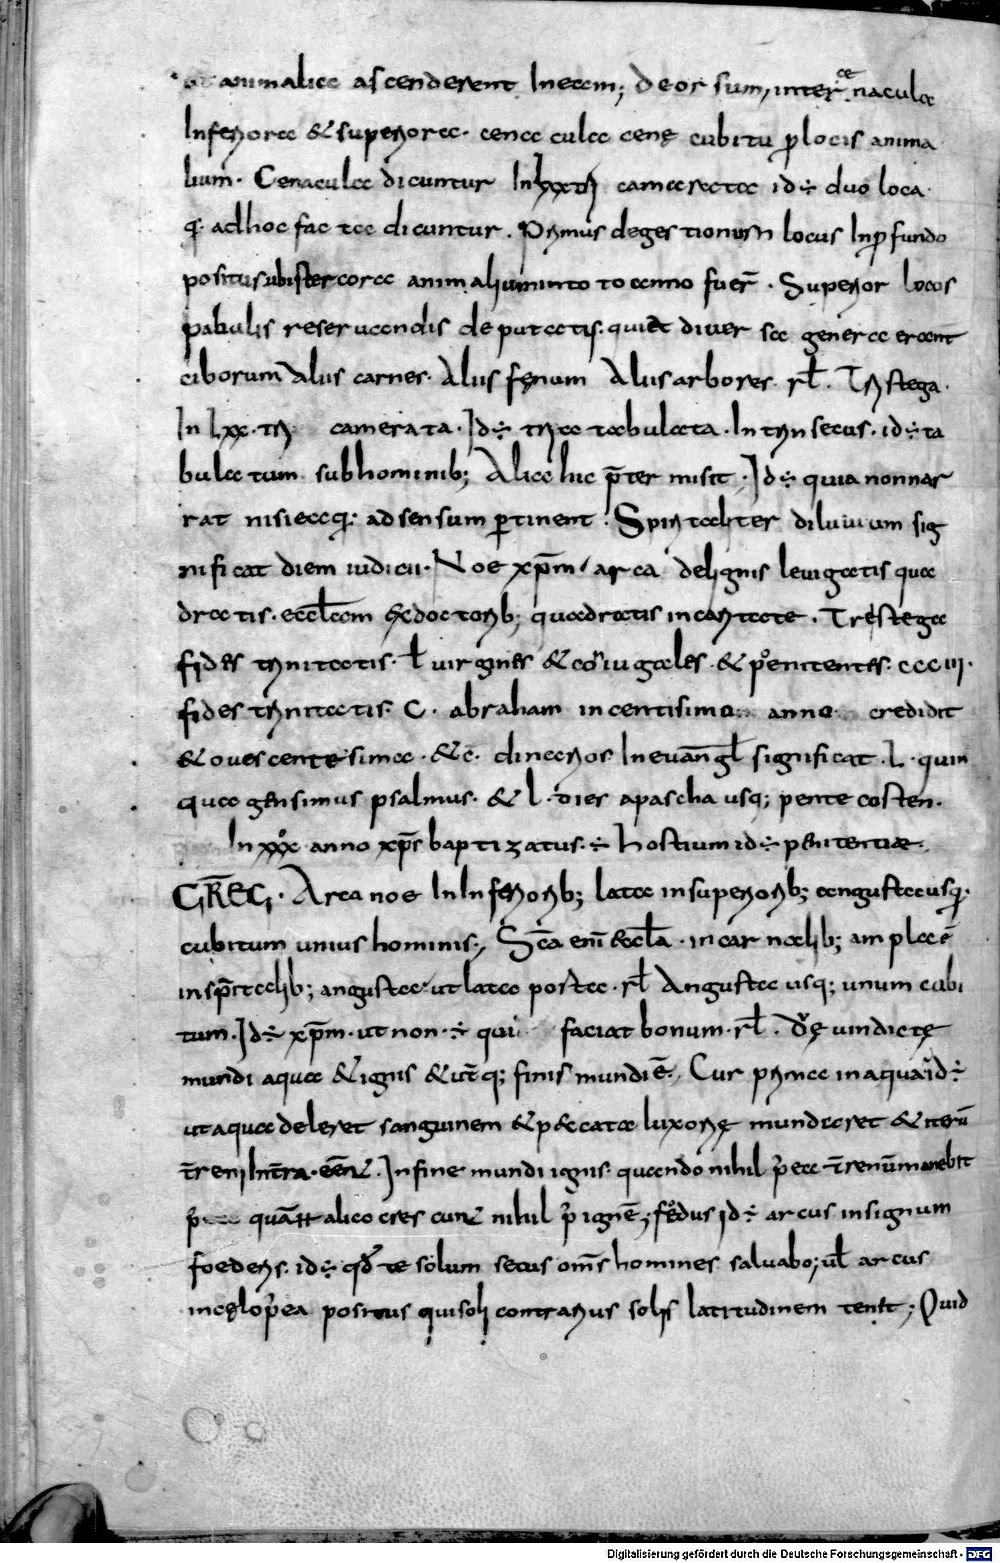 animalia ascenderent In eam; deorsum, inter cęnacula
Inferiora & superiora. cena cula cenę cubitu p locis anima
lium. Cenacula dicuntur In lxx tri camerata id÷ duo loca.
q; adhoc facta dicuntur. Primus degestionum locus Inpfundo
positus ubi stercora animalium into to anno fuer̄. Superior locus
pabulis reseruandis deputatis. quia & diuersa genera erant
ciborum Alius carnes. Alius fęnum Alius arbores. rł. Tristega.
In Lxx. tri camerata. Id÷ tria tabulata. Intrinsecus. id÷ ta
bulatum sub hominib; Alia hic p̄termisit. Id÷ quia non nar
rat nisi ea q; ad sensum ptinent. Spiritaliter diluuium sig
nificat diem iudicii. Noe xp̄m, arca de lignis leuigatis qua
dratis. eccl̄am & doctorib; quadratis in caritate. Tristega
fides trinitatis. ł uirgines & coniugales. & penitentes. ccc iii.
fides trinitatis. C. abraham in centisimo anno credidit
& oues centesima. & c. dinarios In euāngł significat. L. quin
quagensimus psalmus. & l. dies a pascha usq; pente costen.
In xxx anno xp̄s baptizatus. ÷ hostium id÷ penitentiae.
GREG. Arca noe In Inferiorib; lata in superiorib; angusta usq;
cubitum unius hominis., Sc̄a enī &ccl̄a. in carnalib; ampla ē
in sp̄italib; angusta, ut lata postea. rł Angusta usq; unum cubi
tum. Id÷ xp̄m. ut non. ÷ qui faciat bonum. rł. dę uindictę
mundi aqua & ignis & ut̄q; finis mundi ē., Cur prima in aqua id÷
ut aqua deleret sanguinem & p&cata luxorię mundaret & iterū
In fine mundi ignis. quando nihil p̄ea manebit
alia cres cun̄ nihil p̄ ignē; fędus id÷ arcus in signum
foederis. id÷ qđ te solum secus om̄s homines saluabo; uł arcus
in cęlo p̄ea positus qui soli contrarius solis latitudinem tenet; Quid
Digitalisierung gefördert durch die Deutsche Forschungsgemeinschaft - DFG